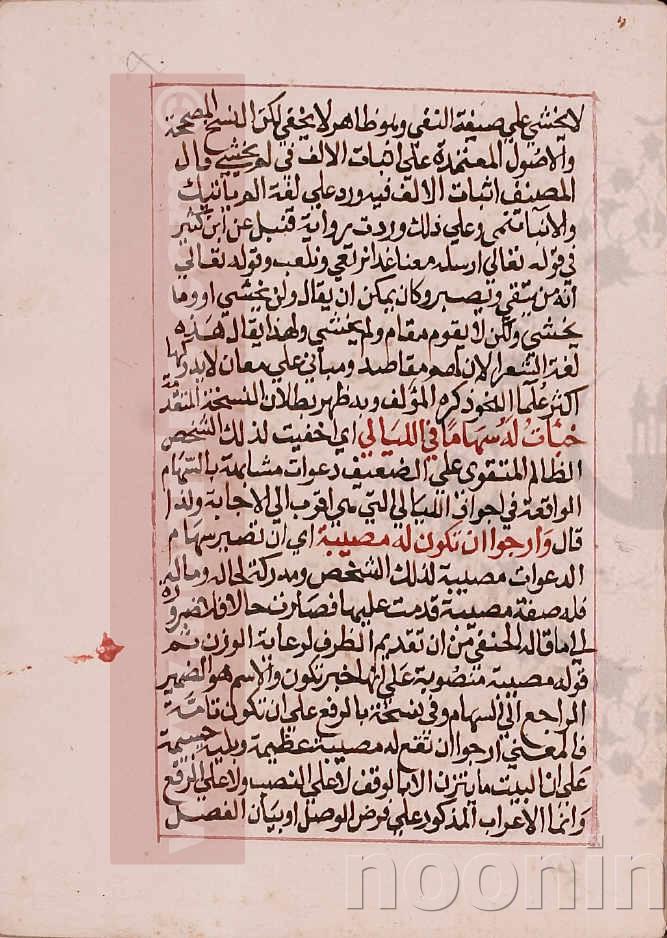 لا يخشي علي صيغة النفي وهو ظاهر لا يخفي لكن النسخ المصححة
والاصول المعتمدة علي اثبات الالف في لم يخشي قال
المصنف اثبات الالف فيه ورد علي لغة الم ياتيك
والانباء تنمي وعلي ذلك وردت رواية قنبل عن ابن كثير
في قوله تعالي ارسله معنا غدا نرتعي ونلعب وقوله تعالي
انه من يتقي ويصبر وكان يمكن ان يقال ولن يخشي او وما
يخشي ولكن لا يقوم مقام ولم يخشي ولهذا يقال هذه
لغة الشعرا لان لهم مقاصد ومباني علي معان لا يدركها
اكثر علماء النحو ذكره المؤلف وبه ظهر بطلان النسخة المتقدمة
خبأت له سهاما في الليالي اي اخفيت لذلك الشخص
الظالم المتقوي علي الضعيف دعوات مشابهة بالسهام
الواقعة في اجواف الليالي التي هي اقرب الي الاجابة ولذا
قال وارجوا ان تكون له مصيبة اي ان تصير سهام
الدعوات مصيبة لذلك الشخص ومدركة لحاله وماله
فله صفة مصيبة قدمت عليها فصارت حالا فلا ضرورة
الي ما قاله الحنفي من ان تقديم الظرف لرعاية الوزن ثم
قوله مصيبة منصوبة علي انها خبر تكون والاسم هو الضمير
الراجع الي السهام وفي نسخة بالرفع علي ان تكون تامة
فالمعني ارجوا ان تقع له مصيبة عظيمة وبلية جسيمة
علي ان البيت ما يتزن الا بالوقف لا علي النصب ولا علي الرفع
وانما الاعراب المذكور علي فرض الوصل او بيان الفصل
noonin